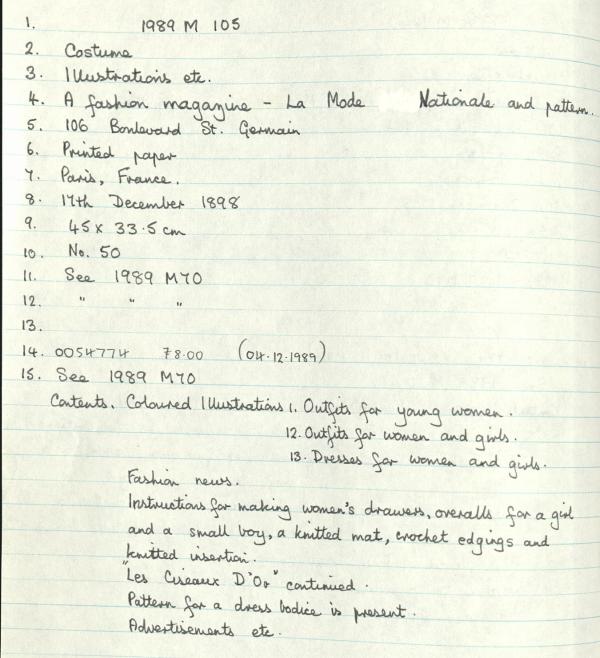 1. 1989 M 105
2. Costume
3. Illustrations etc.
4. A fashion magazine - La Mode Nationale and pattern.
5. 106 Boulevard St. Germain
6. Printed paper
7. Paris, France.
8. 17th December 1898
9. 45 x 33.5 cm
10. No. 50
11. See 1989 M70
12. " " "
13.
14. 0054774 78.00 (04.12.1989)
15. See 1989 M70
Contents. Coloured Illustrations 1. Outfits for young women.
12. Outfits for women and girls.
13. Dresses for women and girls.
Fashion news.
Instructions for making women's drawers, overalls for a girl
and a small boy, a knitted mat, crochet edgings and
knitted insertion.
"Les Ciseaux D'Or" continued.
Pattern for a dress bodice is present.
Advertisements etc.